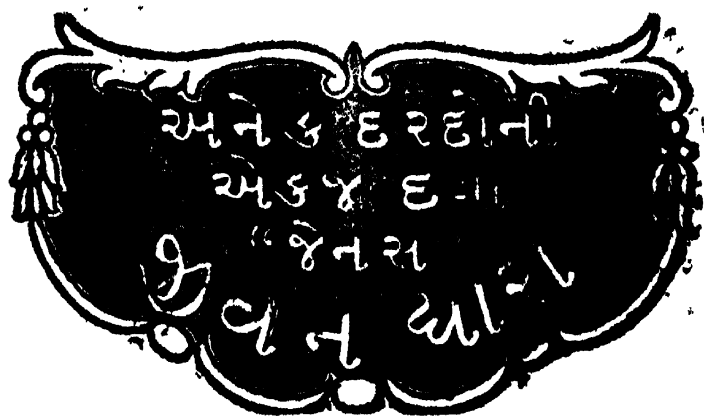 અનેક દરદોની
એકજ દવા
“જેનસ
જીવન ધારા